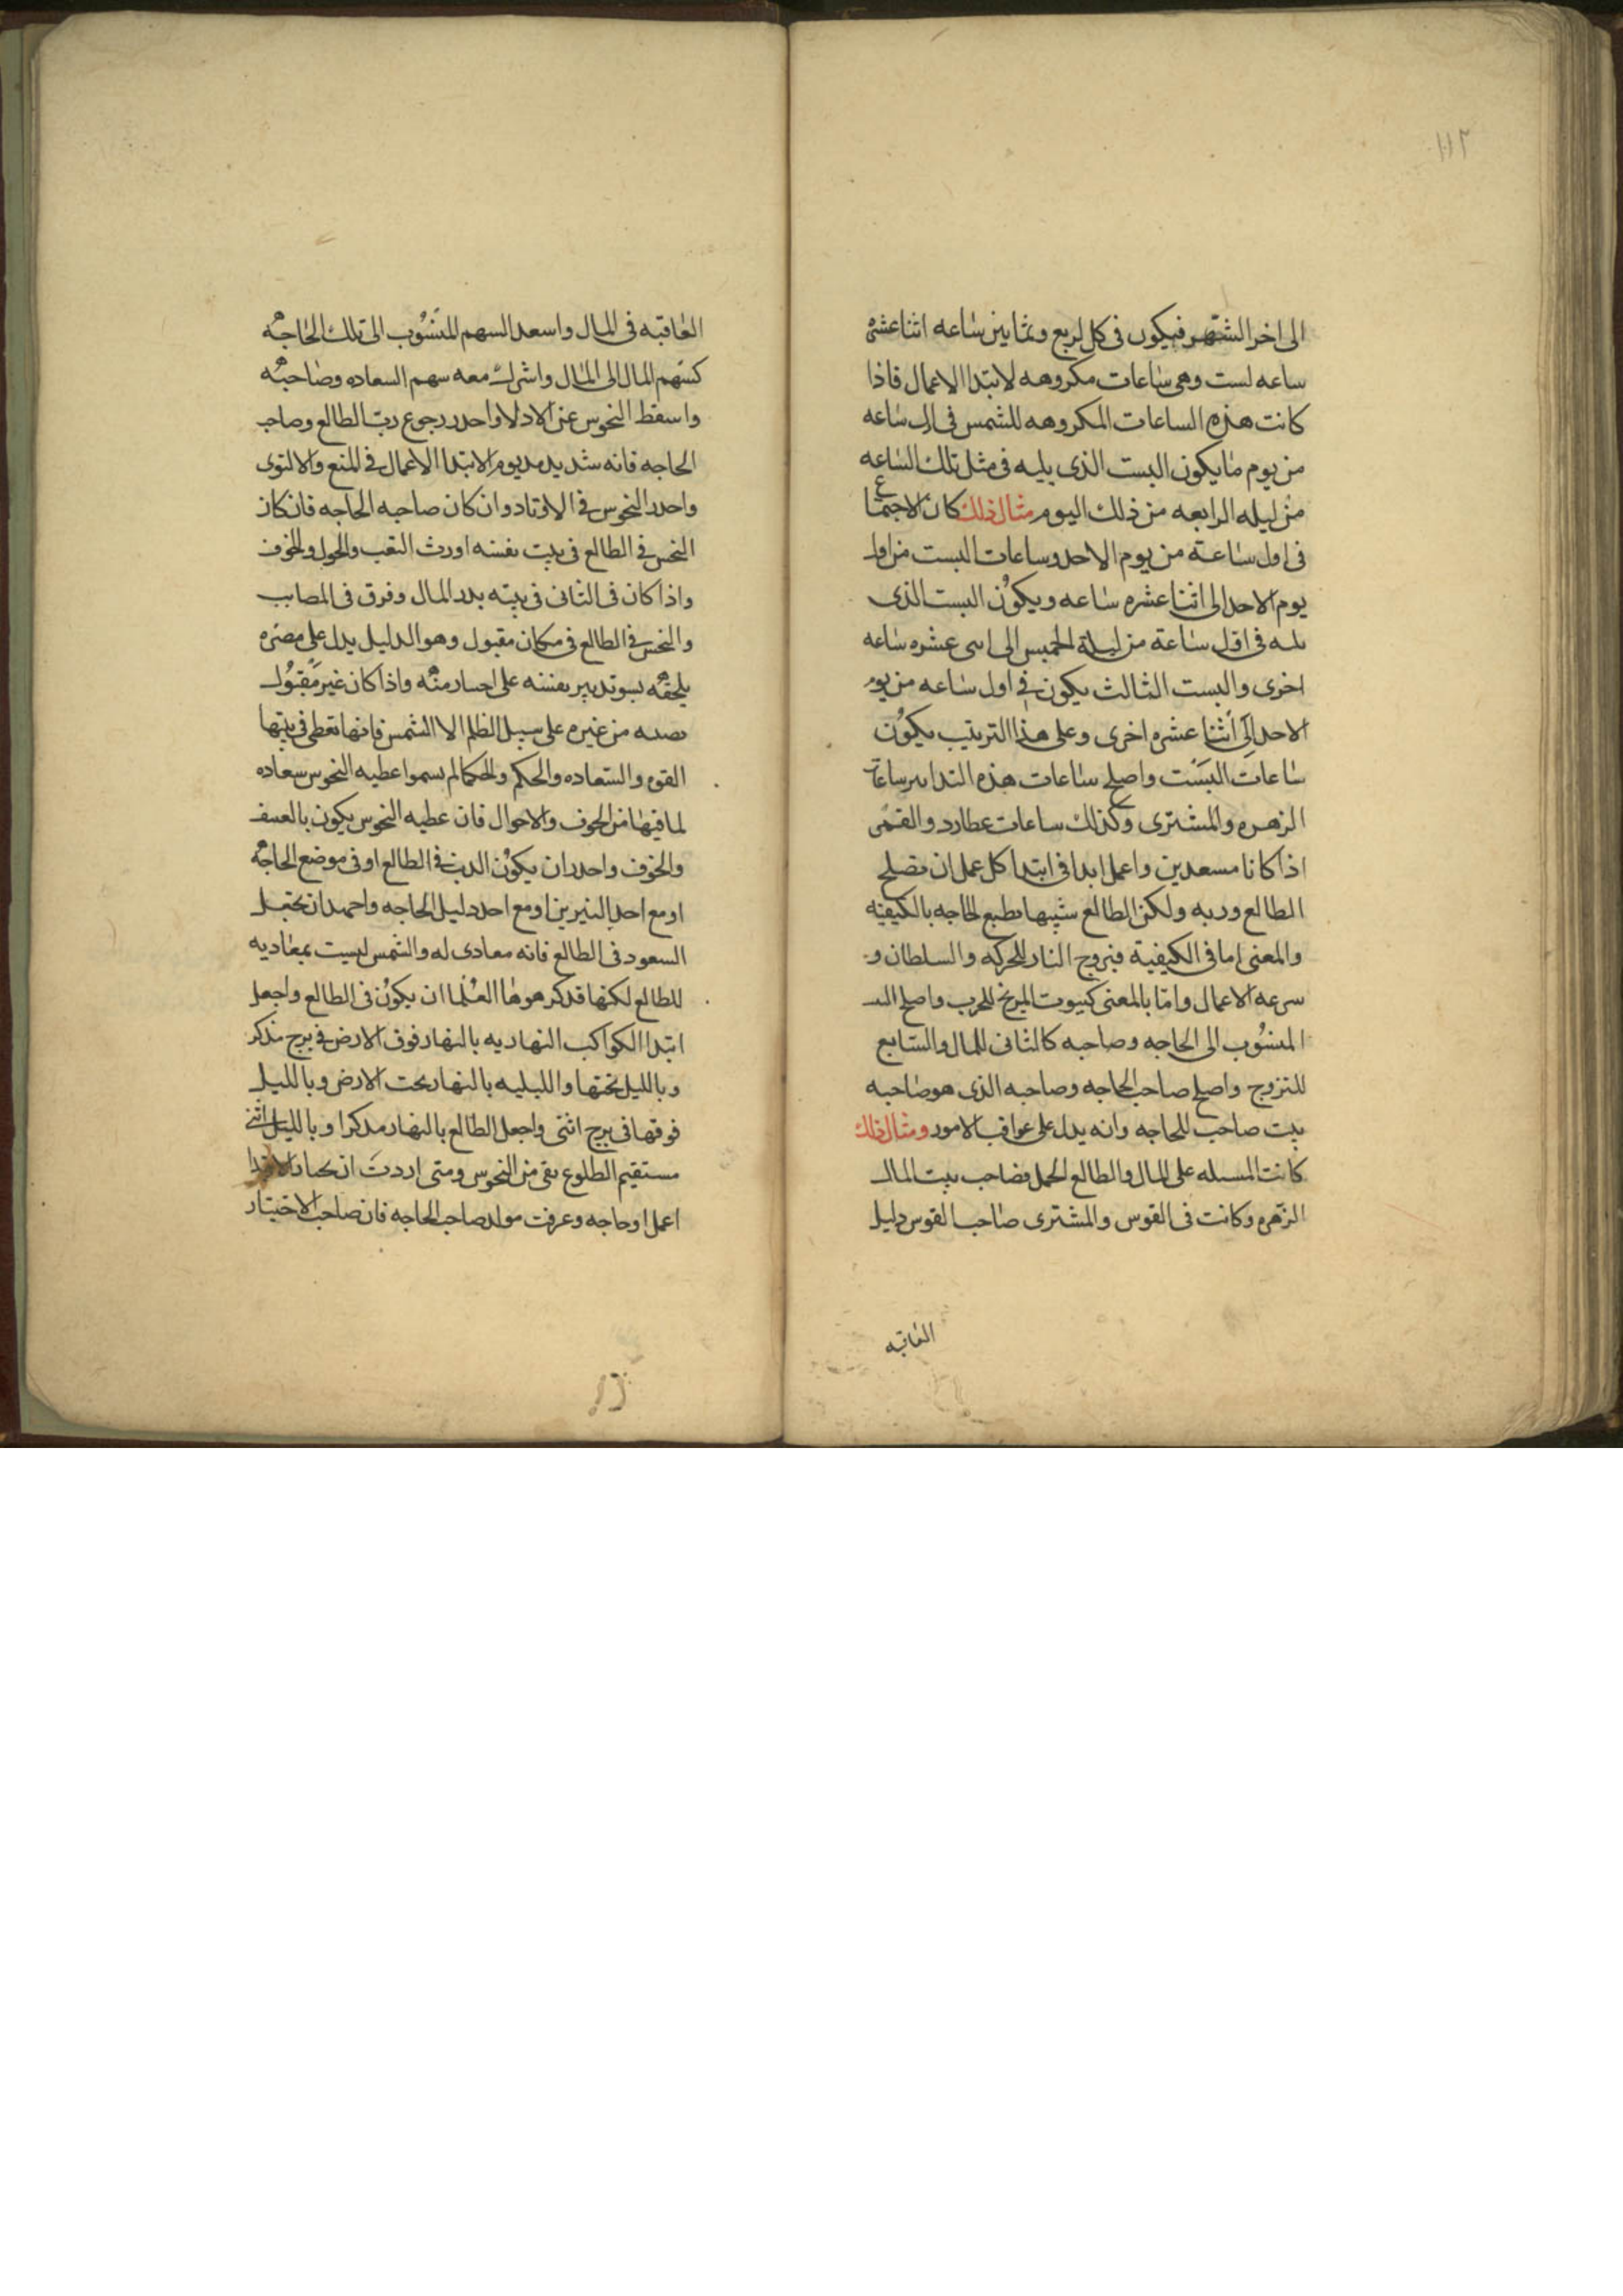 ١١٢
الى اخر الشهر فيكون فى كل اربع وثمانين ساعه اثنا عشره
ساعه لست وهى ساعات مكروهه لابتدا الاعمال فاذا
كانت هذه الساعات المكروهه للشمس فى اول ساعه
من يوم ما يكون البست الذى يليه فى مثل تلك الساعه
من ليله الرابعه من ذلك اليوم مثال ذلك كان الاجتماع
فى اول ساعة من يوم الاحد وساعات البست من اول
يوم الاحد الى اثنا عشره ساعه ويكون البست الذى
يليه فى اول ساعة من ليلة الخميس الى اسى عشره ساعه
اخرى والبست الثالث يكون فى اول ساعه من يوم
الاحد الى اثنا عشره اخرى وعلى هذا الترتيب يكون
ساعات البست واصلح ساعات هذه التدابير ساعات
الزهره والمشترى وكذلك ساعات عطارد والقمر
اذا كانا مسعدين واعمل ابدا فى ابتدا كل عمل ان تصلح
الطالع وربه وليكن الطالع شبيها بطبع الحاجه بالكيفيه
والمعنى اما فى الكيفية فبروج النار للحركه والسلطان و
سرعه الاعمال واما بالمعنى كبيوت المريخ للحرب واصلح البيت
المنسوب الى الحاجه وصاحبه كالثانى للمال والسابع
للتزوج واصلح صاحب الحاجه وصاحبه الذى هو صاحبه
بيت صاحب للحاجه وانه يدل على عواقب الامور ومثال ذلك
كانت المسله على المال والطالع الحمل فصاحب بيت المال
الزهره وكانت فى القوس والمشترى صاحب القوس دليل
العاقبه
العاقبه فى المال واسعد السهم المنسوب الى تلك الحاجه
كسهم المال الى المال واشرك معه سهم السعاده وصاحبه
واسقط النحوس عن الادلا واحدر رجوع رب الطالع وصاحب
الحاجه فانه شديد مديوم الابتدا الاعمال فى المنع والالتوى
واحدر النحوس فى الاوتاد وان كان صاحبه الحاجه فان كان
النحس فى الطالع فى بيت نفسه اورث التعب والحول والخوف
واذا كان فى الثانى فى بيته بدد المال وفرق فى المصايب
والنحس فى الطالع فى مكان مقبول وهو الدليل يدل على مضره
يلحقه بسو تدبير بنفسه على اجسار منه واذا كان غير مقبول
من غيره على سبيل الظلم الا الشمس فانها تعطى فى بيتها
القوه والسعاده والحكم والحكما لم يسموا عطيه النحوس سعاده
لما فيها من الخوف والاحوال فان عطيه النحوس يكون بالعسف
والخوف واحدر ان يكون الذنب فى الطالع او فى موضع الحاجه
او مع احد النيرين او مع احد دليل الحاجه واحمد ان تجعل
السعود فى الطالع فانه معادى له والشمس ليست بمعاديه
للطالع لكنها قد كرهوها العلما ان يكون فى الطالع واجعل
ابتدا الكواكب النهاريه بالنهار فوق الارض فى برج مذكر
وبالليل تحتها والليليه بالنهار تحت الارض وبالليل
فوقها فى برج انثى واجعل الطالع بالنهار مذكرا وبالليل انثى
مستقيم الطلوع نقى من النحوس ومتى اردت ان
اعمل او حاجه وعرفت مولد صاحب الحاجه فان صاحب الاختيار